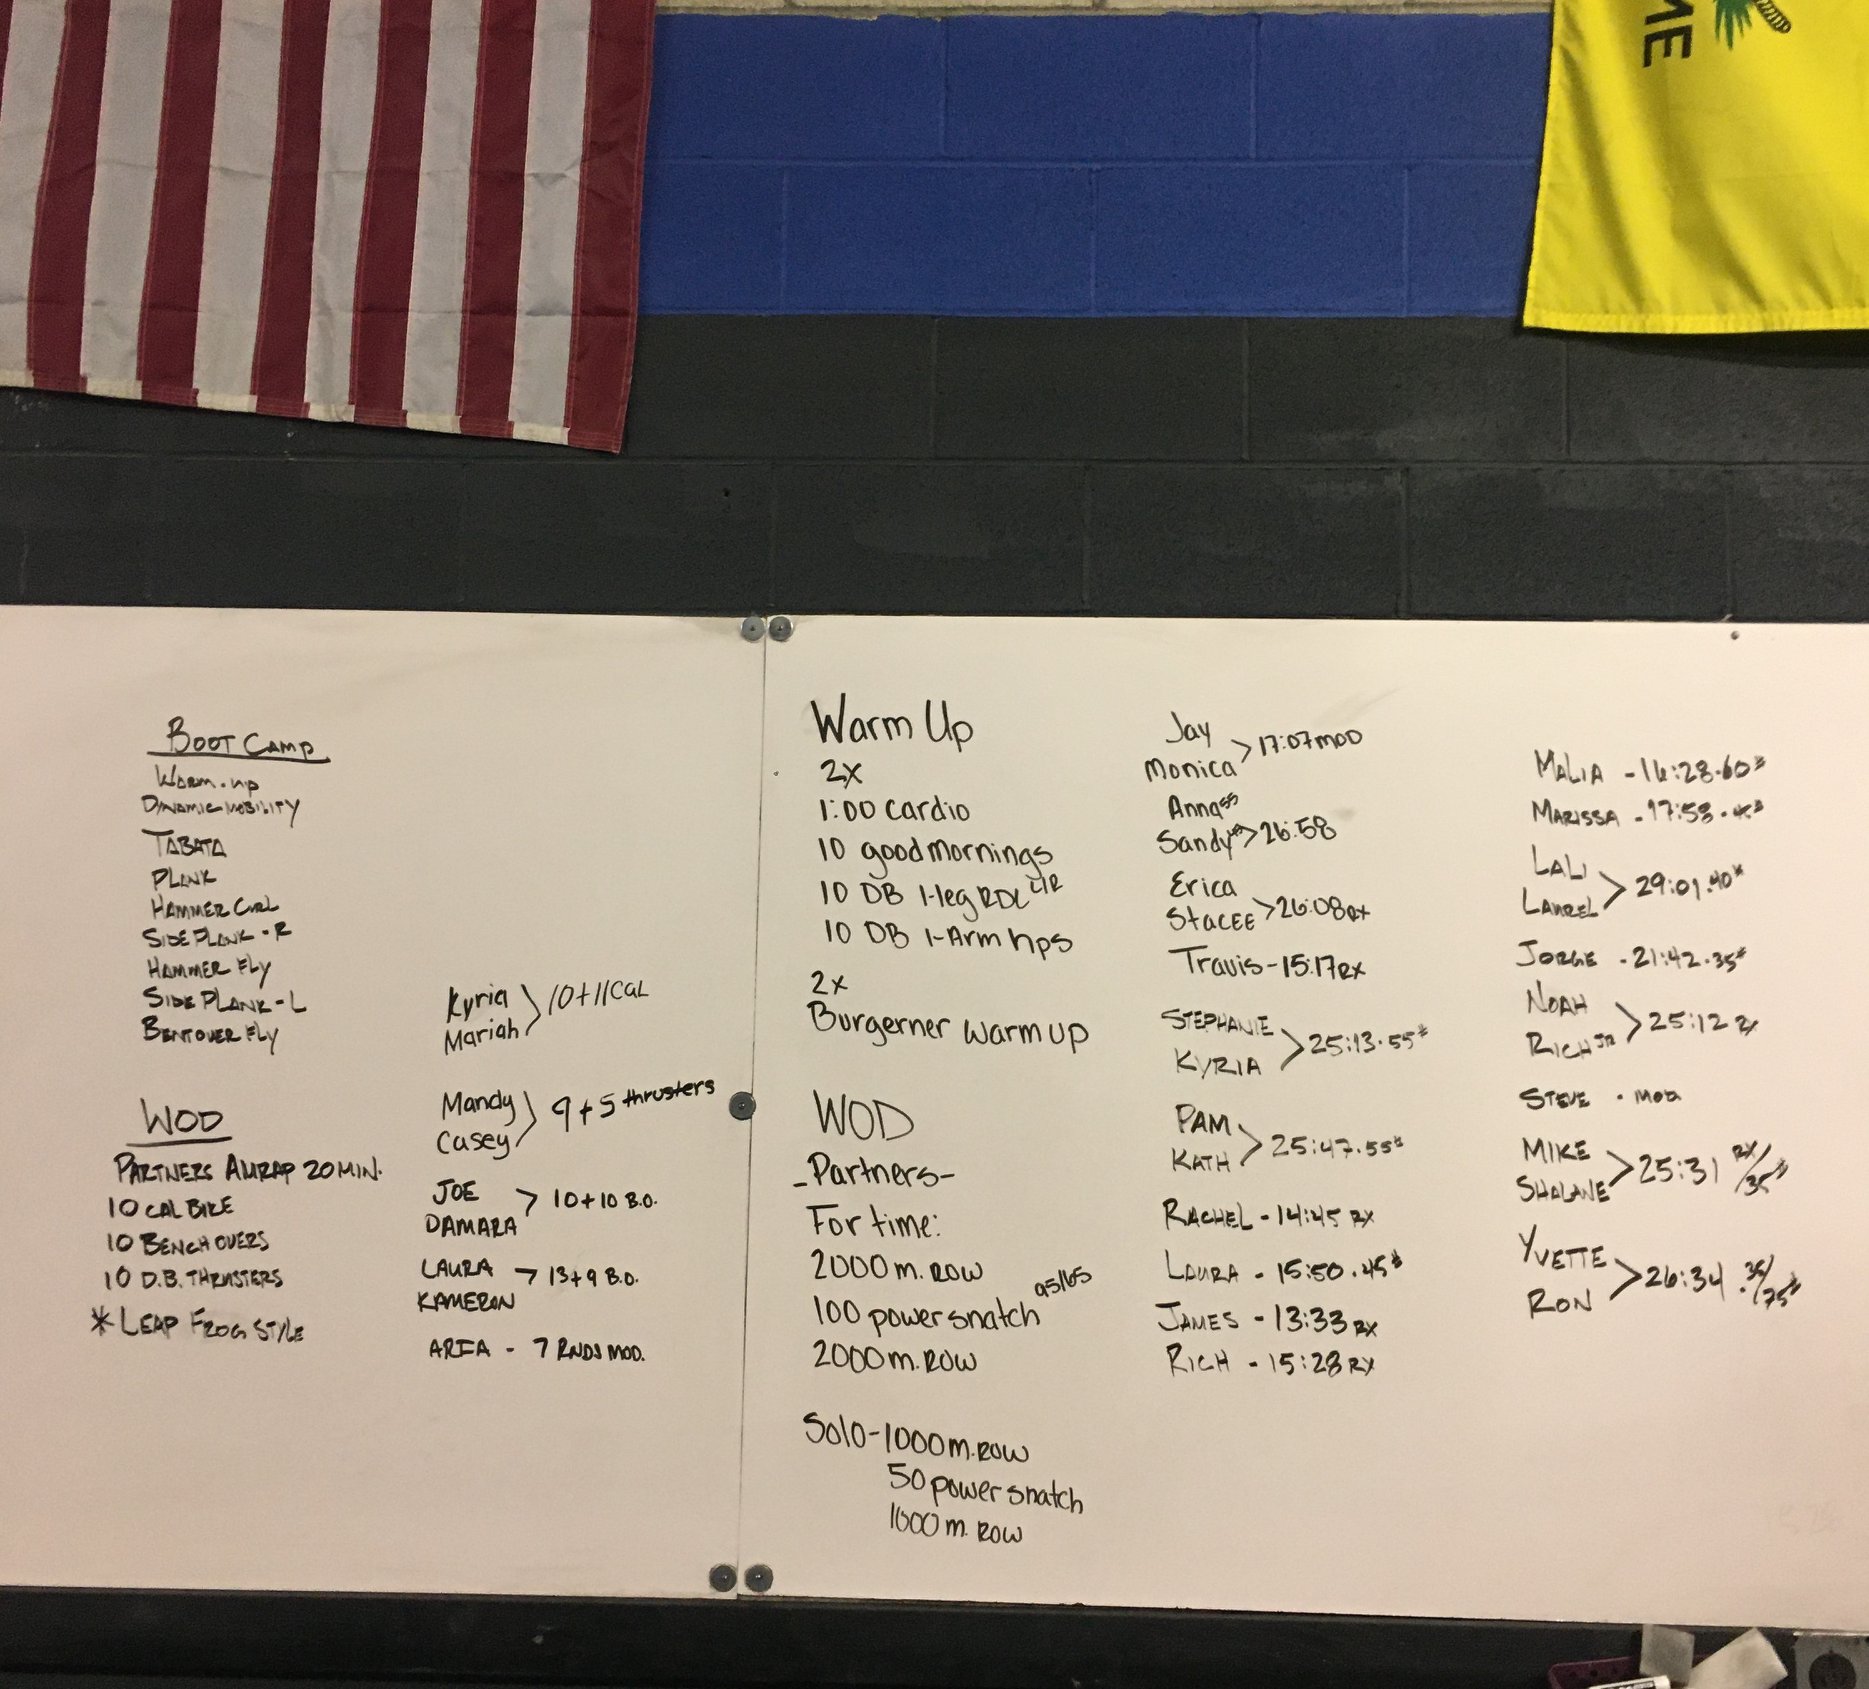 ME
BOOT CAMP
WARM-UP
DYNAMIC MOBILITY
TABATA
PLANK
HAMMER CURL
SIDE PLANK - R
HAMMER FLY
SIDE PLANK - L
BENTOVER FLY
WOD
PARTNERS AMRAP 20 MIN.
10 CAL BIKE
10 BENCH OVERS
10 D.B. THRUSTERS
* LEAP FROG STYLE
Kyria
Mariah > 10+11 Cal
Mandy
Casey > 9+5 thrusters
JOE
DAMARA > 10+10 B.O.
LAURA
KAMERON > 13+9 B.O.
ARIA - 7 RNDS MOD.
Warm Up
2x
1:00 cardio
10 good mornings
10 DB 1-leg RDL L/R
10 DB 1-Arm hps
2x
Burgerner warm up
WOD
-Partners-
For time:
2000 m. ROW
100 power snatch 95/65
2000 m. ROW
Solo-1000 m. ROW
50 power snatch
1000 m. ROW
Jay
Monica > 17:07 MOD
Anna 55
Sandy > 26:58
Erica
Stacee > 26:08 RX
Travis - 15:17 RX
STEPHANIE
KYRIA > 25:13 · 55#
PAM
KATH > 25:47 · 55#
RACHEL - 14:45 RX
LAURA - 15:50 · 45#
JAMES - 13:33 RX
RICH - 15:28 RX
MALIA - 16:28 · 60#
MARISSA - 17:58 ·
LALI
LAUREL > 29:01 · 40#
JORGE - 21:42 · 35#
NOAH
RICH JR > 25:12 RX
STEVE · MOD
MIKE
SHALANE > 25:31 RX/35#
YVETTE
RON > 26:34 · 35/75#